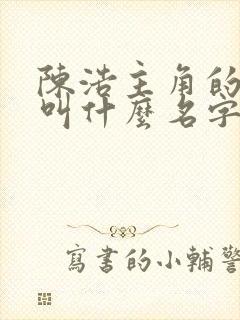 陳浩主角的
叫什麼名字
寫書的小輔警